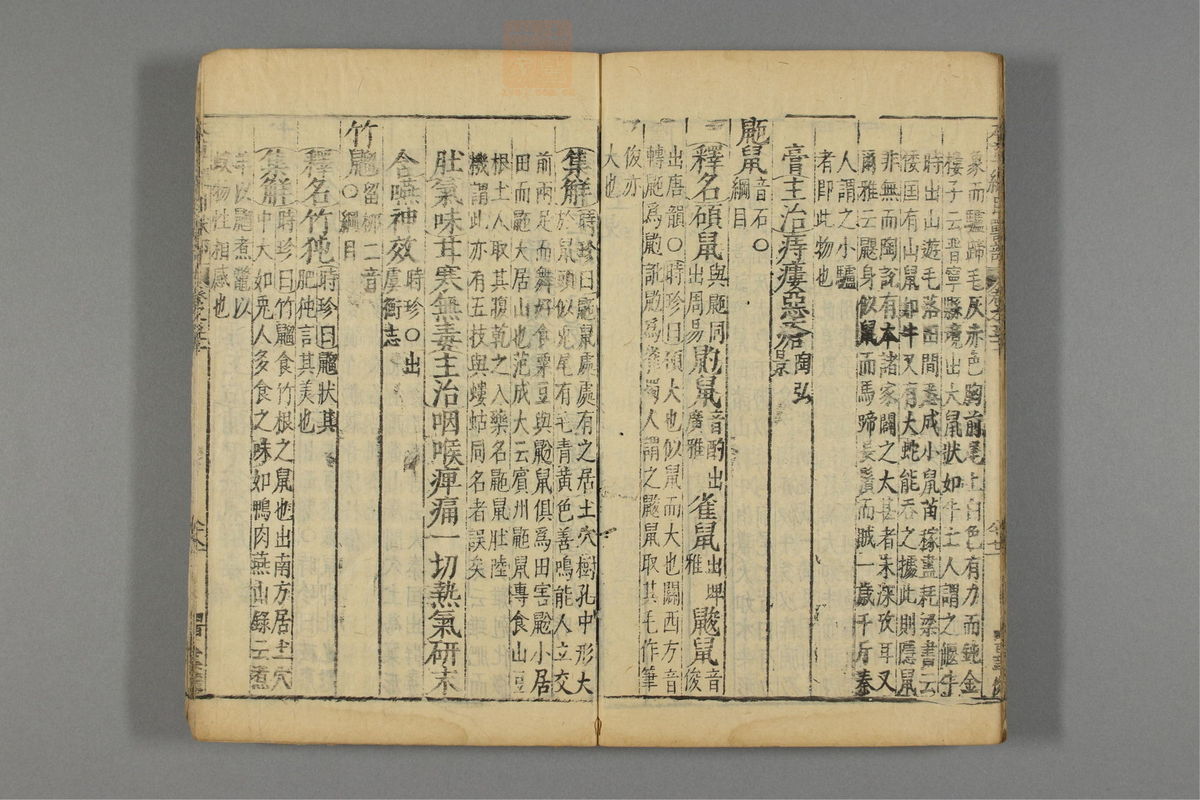 象而驢蹄毛灰赤色胸前尾上白色有力而鈍金
樓子云晋寧縣境出大鼠狀如牛土人謂之偃牛
時出山遊毛落田間悉成小鼠苗稼盡耗梁書云
倭国有山鼠如牛又有大蛇能吞之據此則隱鼠
非無而陶說有本諸家闢之太甚者未深攷耳又
爾雅云鼳身似鼠而馬蹄長鬚而賊一歲千斤秦
人謂之小驢
者即此物也
膏主治痔瘻惡瘡陶弘景
鼫鼠音石〇綱目
釋名碩鼠與鼫同出周易鼩鼠音酌出廣雅雀鼠出埤雅䶂鼠音俊
出唐韻〇時珍曰碩大也似鼠而大也關西方音
轉鼫為鼩訛鼩為雀蜀人謂之䶂鼠取其毛作筆
俊亦
大也
集解時珍曰鼫鼠處處有之居土穴樹孔中形大
於鼠頭似兎尾有毛青黄色善鳴能人立交
前兩足而舞好食粟豆與鼢鼠俱為田害鼢小居
田而鼫大居山也范成大云賓州鼫鼠專食山豆
根土人取其腹乾之入藥名鼫鼠肚陸
機謂此亦有五技與螻蛄同名者誤矣
肚氣味甘寒無毒主治咽喉痺痛一切熱氣研末
含嚥神效時珍〇出虞衡志
竹䶉留柳二音〇綱目
釋名竹㹠時珍曰䶉狀其肥㹠言其美也
集解時珍曰竹䶉食竹根之鼠也出南方居土穴
中大如兎人多食之味如鴨肉燕山錄云煮
羊以䶉煮鱉以
蚊物性相感也